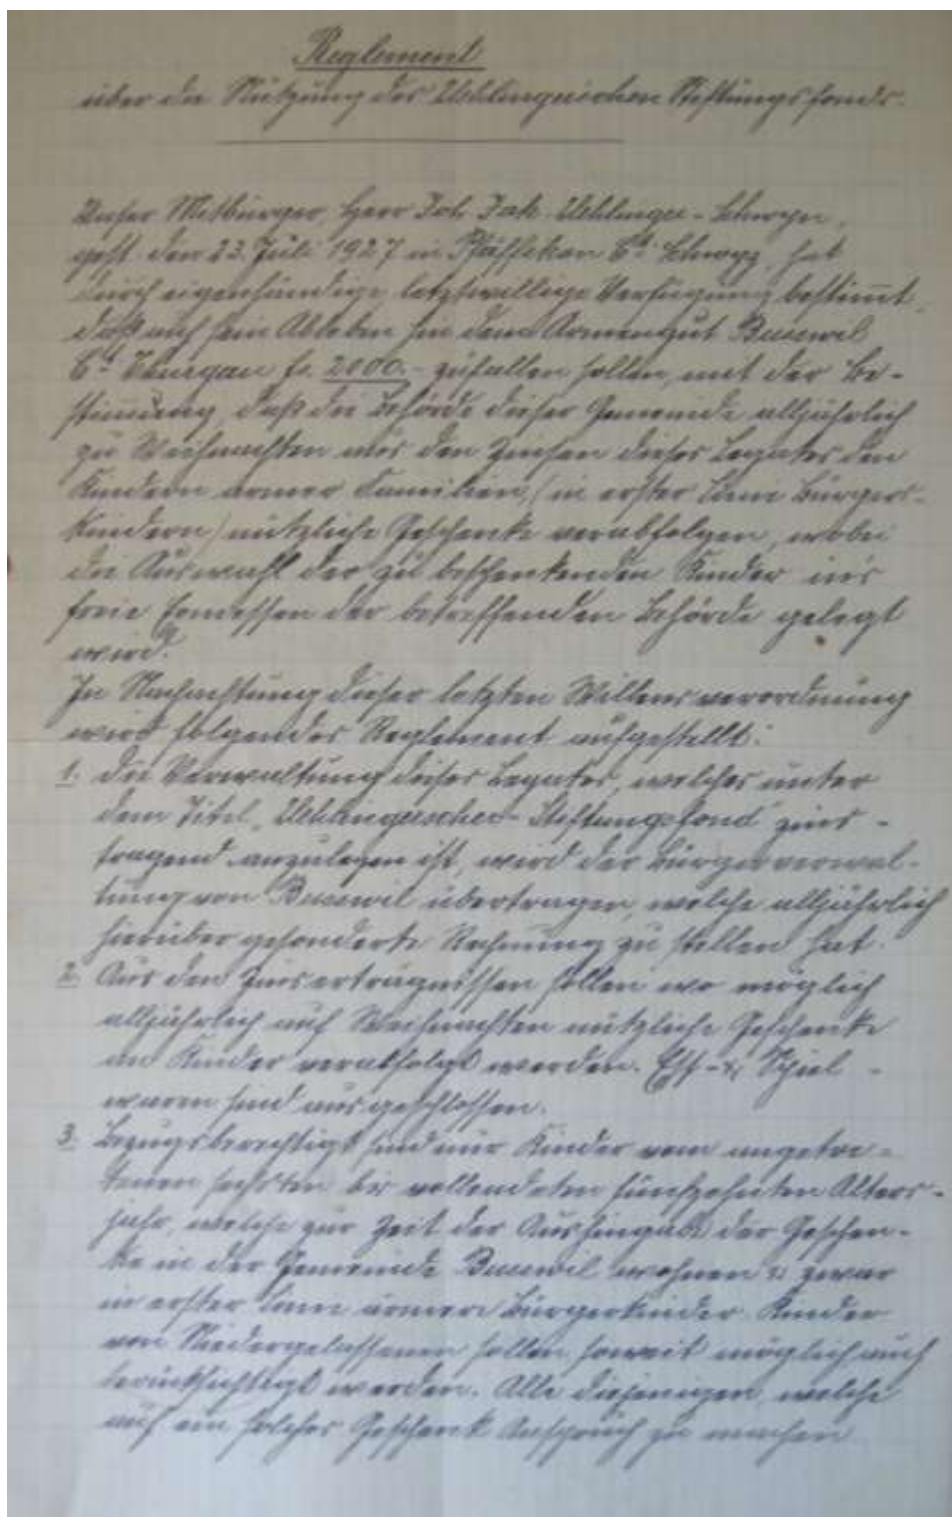 Reglement
über die Nutzung des Uehlinger'schen Stiftungsfonds.
Unser Mitbürger, Herr Joh. Jak. Uehlinger-Schwyn,
gest. den 23. Juli 1927 in Pfäffikon Ct. Schwyz, hat
durch eigenhändige letztwillige Verfügung bestimmt,
daß nach sein Ableben hin dem Armengut Busswil
Ct. Thurgau fr. 2000.- zufallen sollen, mit der Be-
stimmung, daß die Behörde dieser Gemeinde alljährlich
zu Weihnachten aus den Zinsen dieses Legates den
Kindern armer Familien, (in erster Linie Bürgers-
kindern) nützliche Geschenke verabfolgen, wobei
die Auswahl der zu beschenkenden Kinder in's
freie Ermessen der betreffenden Behörde gelegt
wird.
In Nachachtung dieser letzten Willensverordnung
wird folgendes Reglement aufgestellt:
1. Die Verwaltung dieses Legates, welches unter
dem Titel „Uehlingerscher-Stiftungsfond" zins-
tragend anzulegen ist, wird der Bürgerverwal-
tung von Busswil übertragen, welche alljährlich
hierüber gesonderte Rechnung zu stellen hat.
2. Aus den Zinserträgnissen sollen wo möglich
alljährlich auf Weihnachten nützliche Geschenke
an Kinder verabfolgt werden. Eß- & Spiel-
waren sind ausgeschlossen.
3. Bezugsberechtigt sind nur Kinder vom angetre-
tenen sechsten bis vollendeten fünfzehnten Alters-
jahr, welche zur Zeit der Aushingabe der Geschen-
ke in der Gemeinde Busswil wohnen & zwar
in erster Linie ärmere Bürgerkinder. Kinder
von Niedergelassenen sollen soweit möglich auch
berücksichtigt werden. Alle diejenigen, welche
auf ein solches Geschenk Anspruch zu machen